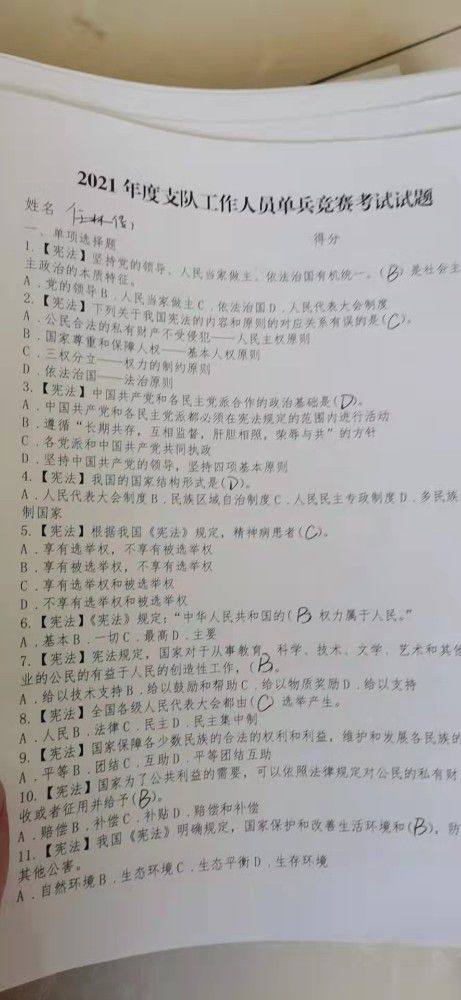 2021 年度支队工作人员单兵竞赛考试试题
姓名 得分
一、单项选择题
1.【宪法】坚持党的领导、人民当家做主、依法治国有机统一。(B) 是社会主
主政治的本质特征。
A．党的领导 B．人民当家做主 C．依法治国 D．人民代表大会制度
2.【宪法】下列关于我国宪法的内容和原则的对应关系有误的是(C)。
A．公民合法的私有财产不受侵犯——人民主权原则
B．国家尊重和保障人权——基本人权原则
C．三权分立——权力的制约原则
D．依法治国——法治原则
3.【宪法】中国共产党和各民主党派合作的政治基础是(D)。
A．中国共产党和各民主党派都必须在宪法规定的范围内进行活动
B．遵循“长期共存，互相监督，肝胆相照，荣辱与共”的方针
C．各党派和中国共产党共同执政
D．坚持中国共产党的领导，坚持四项基本原则
4.【宪法】我国的国家结构形式是(D)。
A．人民代表大会制度 B．民族区域自治制度 C．人民民主专政制度 D．多民族
制国家
5.【宪法】根据我国《宪法》规定，精神病患者(C)。
A．享有选举权，不享有被选举权
B．享有被选举权，不享有选举权
C．享有选举权和被选举权
D．不享有选举权和被选举权
6.【宪法】《宪法》规定：“中华人民共和国的(B 权力属于人民。”
A．基本 B．一切 C．最高 D．主要
7.【宪法】宪法规定，国家对于从事教育、科学、技术、文学、艺术和其他
业的公民的有益于人民的创造性工作，(B。
A．给以技术支持 B．给以鼓励和帮助 C．给以物质奖励 D．给以支持
8.【宪法】全国各级人民代表大会都由(C 选举产生。
A．人民 B．法律 C．民主 D．民主集中制
9.【宪法】国家保障各少数民族的合法的权利和利益，维护和发展各民族的
A．平等 B．团结 C．互助 D．平等团结互助
10.【宪法】国家为了公共利益的需要，可以依照法律规定对公民的私有财
收或者征用并给予(B)。
A．赔偿 B．补偿 C．补贴 D．赔偿和补偿
11.【宪法】我国《宪法》明确规定，国家保护和改善生活环境和(B)，防
其他公害。
A．自然环境 B．生态环境 C．生态平衡 D．生存环境